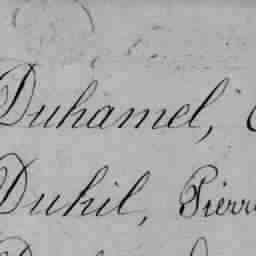 Duhamel,
Duhil, Pierre